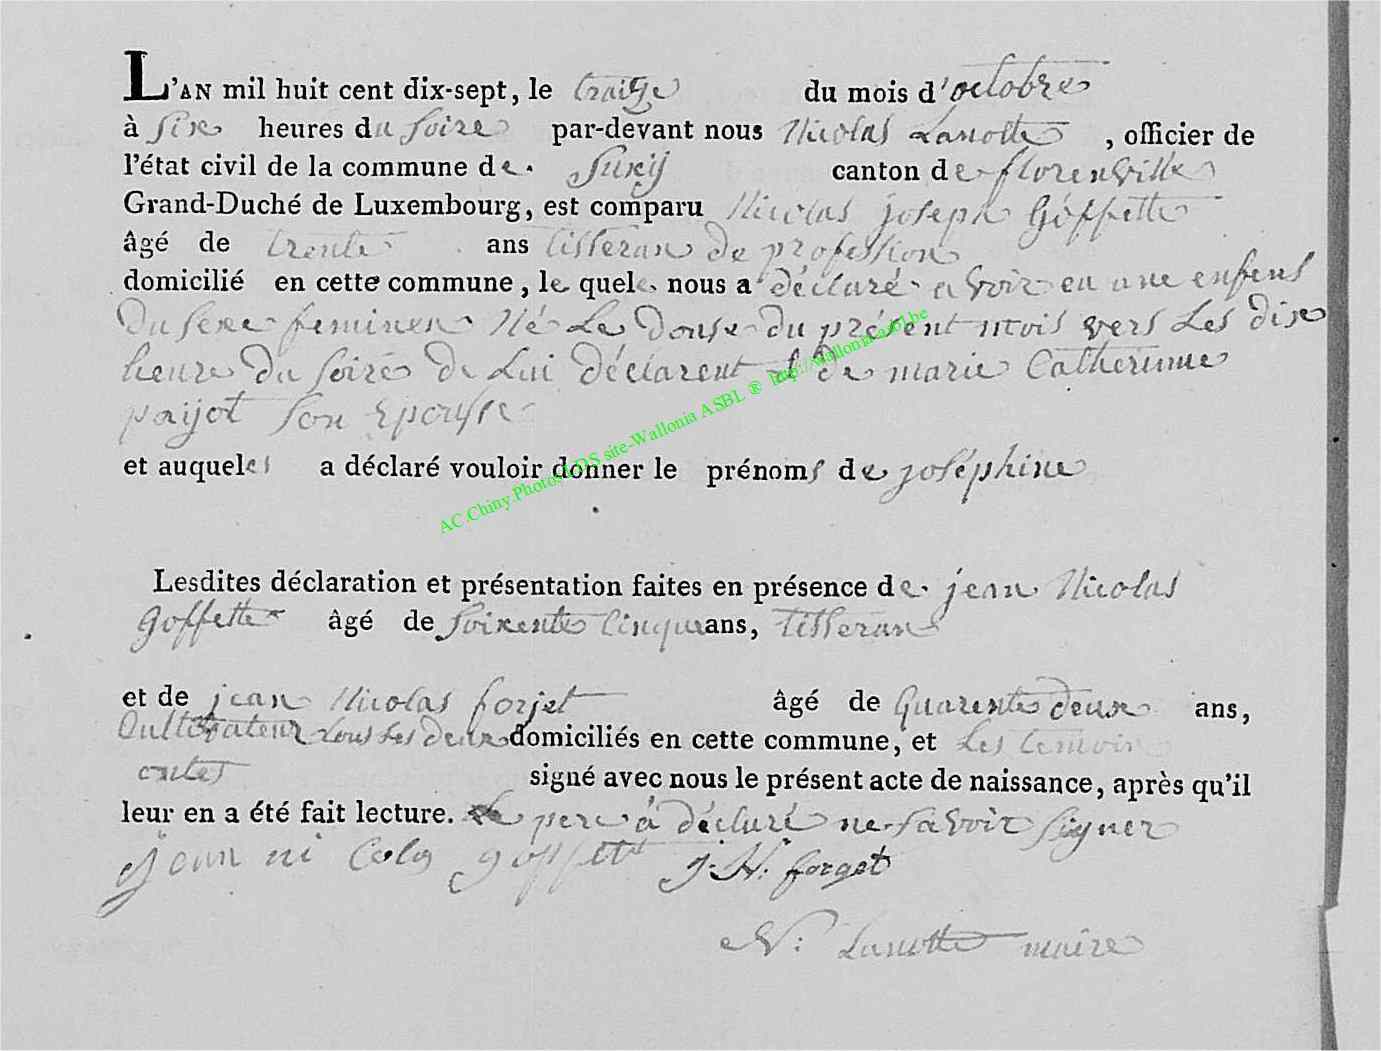 L'AN mil huit cent dix-sept, le traize du mois d'octobre
à six heures du soire par-devant nous Nicolas Lanotte, officier de
l'état civil de la commune de Suxÿ canton de florenville
Grand-Duché de Luxembourg, est comparu Nicolas joseph Goffette
âgé de trente ans tisseran de profession
domicilié en cette commune, le quel nous a déclaré avoir eu une enfens
du sexe feminen Né Le douse du présent mois vers Les dix
heure du soire de Lui déclarent & de marie Catherinne
paijot son Epouse
et auqueles a déclaré vouloir donner le prénoms de joséphine
AC.Chiny.Photos LDS site-Wallonia ASBL ® http://wallonia-asbl.be
Lesdites déclaration et présentation faites en présence de jean Nicolas
Goffette âgé de soixente cinque ans, tisseran
et de jean Nicolas forjet âgé de Quarente deux ans,
Cultivateur tous Les deux domiciliés en cette commune, et Les temoin
ontes signé avec nous le présent acte de naissance, après qu'il
leur en a été fait lecture. Le pere à déclaré ne savoir signer
jean ni Colas goffette j. N. forget
N. Lanotte maire